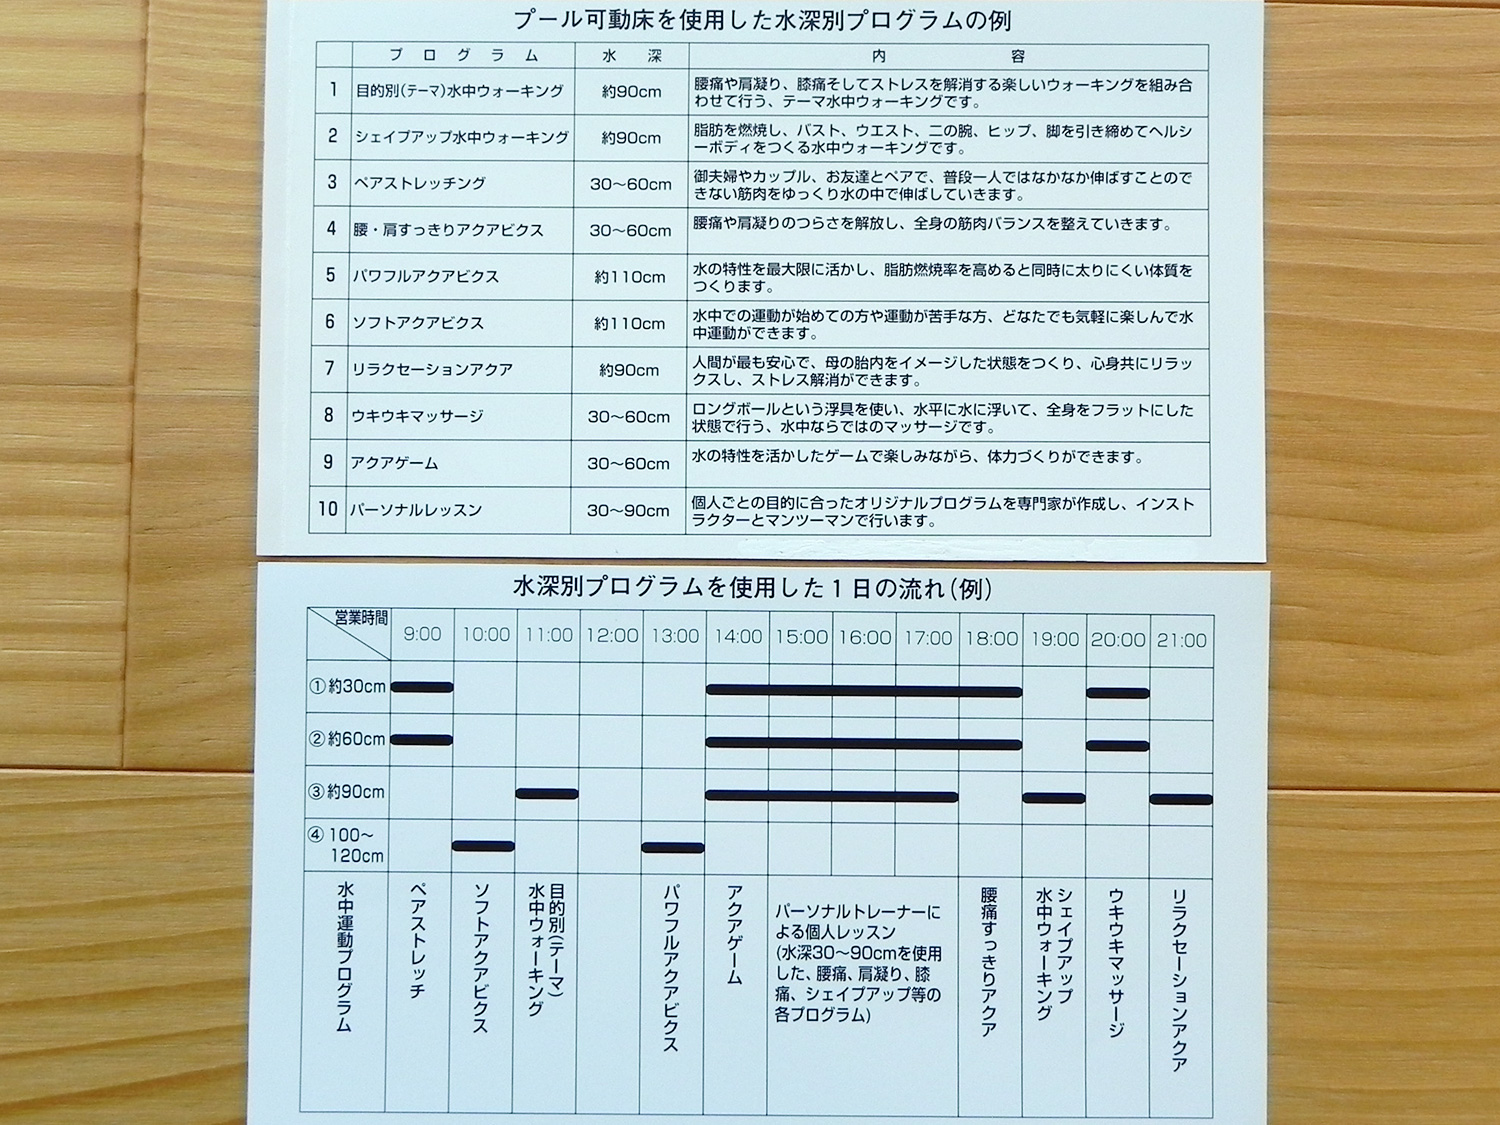 プール可動床を使用した水深別プログラムの例
プログラム 水深 内容
1 目的別(テーマ)水中ウォーキング 約90cm 腰痛や肩凝り、膝痛そしてストレスを解消する楽しいウォーキングを組み合
わせて行う、テーマ水中ウォーキングです。
2 シェイプアップ水中ウォーキング 約90cm 脂肪を燃焼し、バスト、ウエスト、二の腕、ヒップ、脚を引き締めてヘルシ
ーボディをつくる水中ウォーキングです。
3 ペアストレッチング 30〜60cm 御夫婦やカップル、お友達とペアで、普段一人ではなかなか伸ばすことので
きない筋肉をゆっくり水の中で伸ばしていきます。
4 腰・肩すっきりアクアビクス 30〜60cm 腰痛や肩凝りのつらさを解放し、全身の筋肉バランスを整えていきます。
5 パワフルアクアビクス 約110cm 水の特性を最大限に活かし、脂肪燃焼率を高めると同時に太りにくい体質を
つくります。
6 ソフトアクアビクス 約110cm 水中での運動が始めての方や運動が苦手な方、どなたでも気軽に楽しんで水
中運動ができます。
7 リラクセーションアクア 約90cm 人間が最も安心で、母の胎内をイメージした状態をつくり、心身共にリラッ
クスし、ストレス解消ができます。
8 ウキウキマッサージ 30〜60cm ロングボールという浮具を使い、水平に水に浮いて、全身をフラットにした
状態で行う、水中ならではのマッサージです。
9 アクアゲーム 30〜60cm 水の特性を活かしたゲームで楽しみながら、体力づくりができます。
10 パーソナルレッスン 30〜90cm 個人ごとの目的に合ったオリジナルプログラムを専門家が作成し、インスト
ラクターとマンツーマンで行います。
水深別プログラムを使用した1日の流れ(例)
営業時間 9:00 10:00 11:00 12:00 13:00 14:00 15:00 16:00 17:00 18:00 19:00 20:00 21:00
①約30cm
②約60cm
③約90cm
④100〜
120cm
水中運動プログラム
ペアストレッチ
ソフトアクアビクス
目的別(テーマ)
水中ウォーキング
パワフルアクアビクス
アクアゲーム
パーソナルトレーナーに
よる個人レッスン
(水深30〜90cmを使用
した、腰痛、肩凝り、膝
痛、シェイプアップ等の
各プログラム)
腰痛すっきりアクア
シェイプアップ
水中ウォーキング
ウキウキマッサージ
リラクセーションアクア